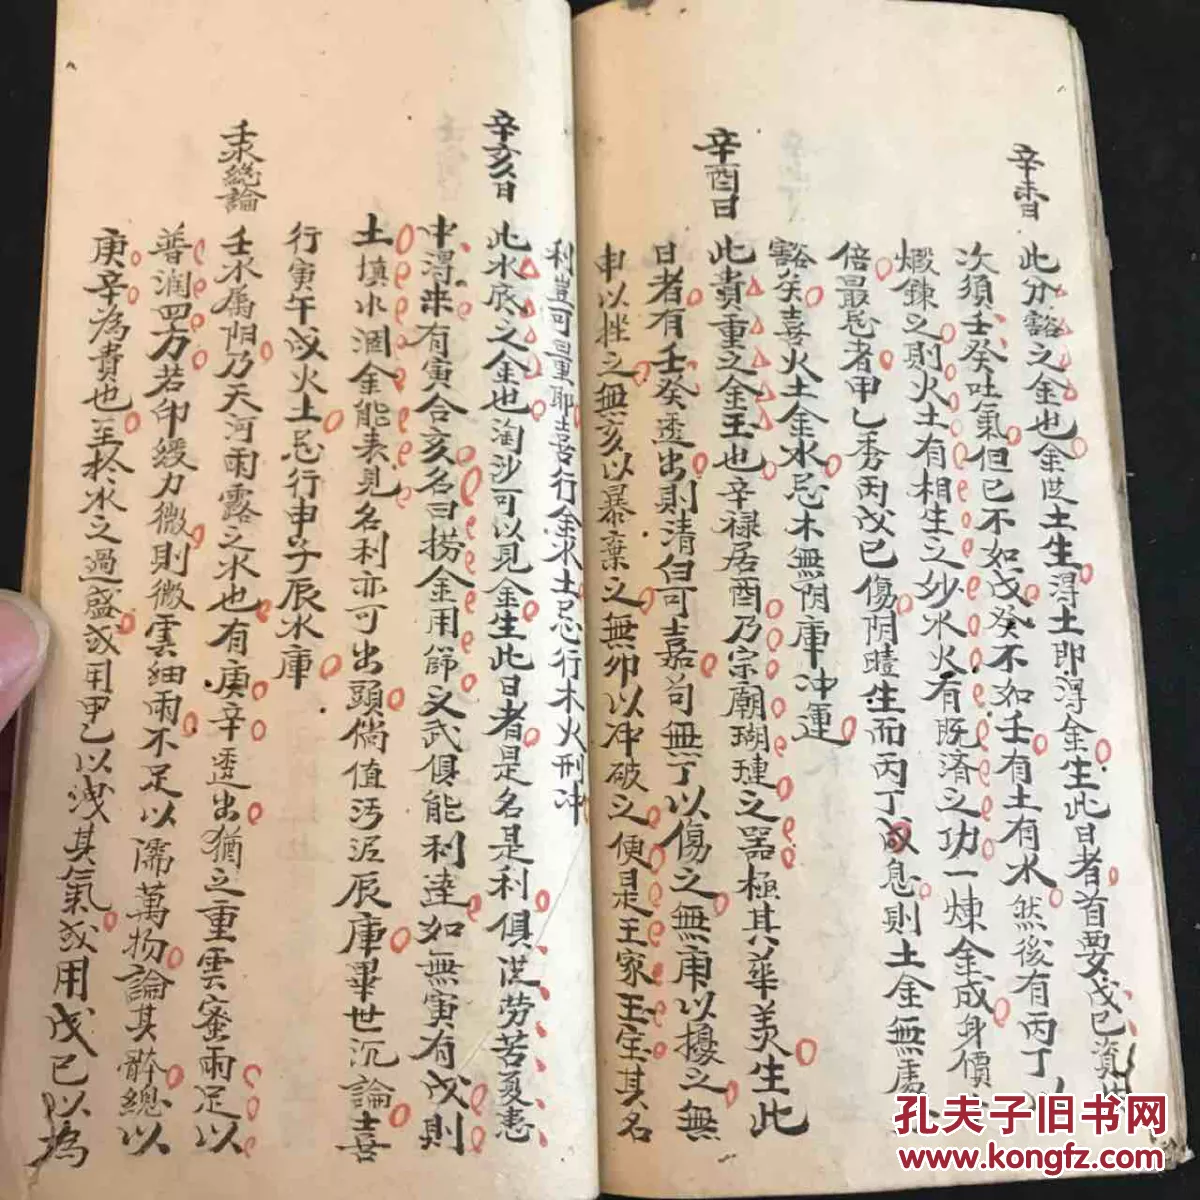 辛未日
此分豁之金也金從土生得土即得金生此日者首要戊己資
次須壬癸吐氣但己不如戊癸不如壬有土有水然後有丙丁以
煅鍊之則火土有相生之妙水火有既濟之功一煉金成身價
倍最忌者甲乙秀丙戊己傷陰曀生而丙丁滅息則土金無處
豁矣喜火土金水忌木無阴庫冲運
辛酉日
此貴重之金玉也辛禄居酉乃宗廟瑚璉之器極其華美生此
日者有壬癸透出則清白可嘉苟無丁以傷之無庚以擾之無
申以挫之無亥以暴棄之無卯以冲破之便是王家玉宝其名
利豈可量耶喜行金水土忌行木火刑冲
辛亥日
此水底之金也淘沙可以見金生此日者是名是利俱從劳苦憂患
中得来有寅合亥名曰捞金用篩文武俱能利達如無寅有戌則
土填水涸金能表見名利亦可出頭倘值污泥辰庫畢世沉論喜
行寅午戌火土忌行申子辰水庫
壬水総論
壬水属阳乃天河雨露之水也有庚辛透出猶之重雲蜜雨足以
普润四方若印緩力微則微雲細雨不足以濡萬物論其骵總以
庚辛為貴也至扵水之過盛或用甲乙以洩其氣或用戊己以為
孔夫子旧书网
www.kongfz.com